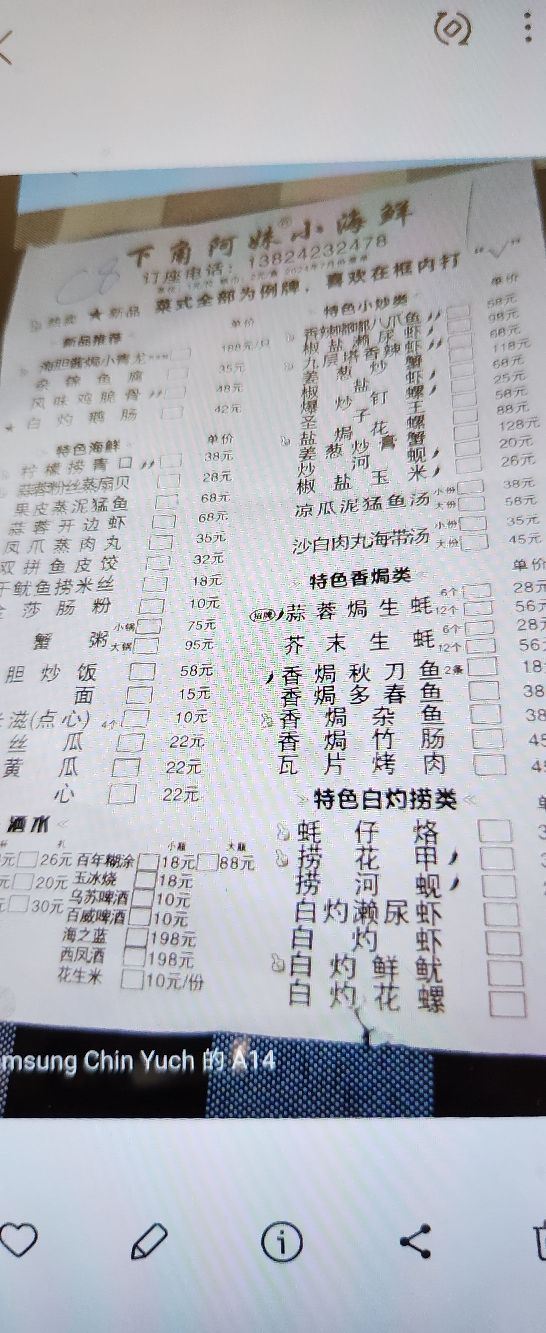 下角阿妹®小海鲜
订座电话：13824232478
菜式全部为例牌，喜欢在框内打“√”
热卖 ★新品
新品推荐 单价
海胆酱焗小青龙 188元/只
鱼 35元
风味鸡脆骨 48元
★白灼鹅肠 42元
特色海鲜 单价
柠檬捞青口 38元
蒜蓉粉丝蒸扇贝 28元
果皮蒸泥猛鱼 68元
蒜蓉开边虾 68元
凤爪蒸肉丸 35元
双拼鱼皮饺 32元
干鱿鱼捞米丝 18元
金莎肠粉 10元
蟹粥 小锅 75元
大锅 95元
胆炒饭 58元
面 15元
滋(点心) 4个 10元
丝瓜 22元
黄瓜 22元
心 22元
酒水
小瓶 大瓶
元 26元 百年糊涂 18元 88元
元 20元 玉冰烧 18元
元 30元 乌苏啤酒 10元
百威啤酒 10元
海之蓝 198元
西凤酒 198元
花生米 10元/份
特色小炒类 单价
香辣嘟嘟八爪鱼 58元
椒盐濑尿虾 98元
九层塔香辣虾 68元
姜葱炒蟹 118元
椒盐虾 68元
爆炒钉螺 25元
圣子王 58元
盐焗花螺 88元
姜葱炒膏蟹 128元
炒河蚬 20元
椒盐玉米 26元
凉瓜泥猛鱼汤 小份 38元
大份 58元
沙白肉丸海带汤 小份 35元
大份 45元
特色香焗类 单价
招牌 蒜蓉焗生蚝 6个 28元
12个 56元
芥末生蚝 6个 28
12个 56
香焗秋刀鱼 2条 18
香焗多春鱼 38
香焗杂鱼 38
香焗竹肠 45
瓦片烤肉 45
特色白灼捞类
蚝仔烙
捞花甲
捞河蚬
白灼濑尿虾
白灼虾
白灼鲜鱿
白灼花螺
msung Chin Yuch 的 A14